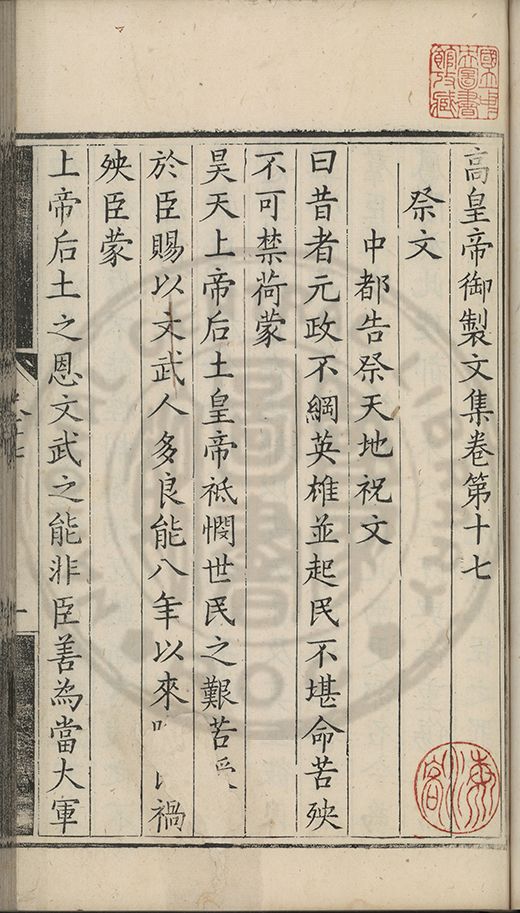 高皇帝御製文集卷第十七
祭文
中都告祭天地祝文
曰昔者元政不綱英雄並起民不堪命苦殃
不可禁荷蒙
昊天上帝后土皇帝祗憫世民之艱苦
於臣賜以文武人多良能八年以來 禍
殃臣蒙
上帝后土之恩文武之能非臣善為當大軍
國立中央圖書館收藏